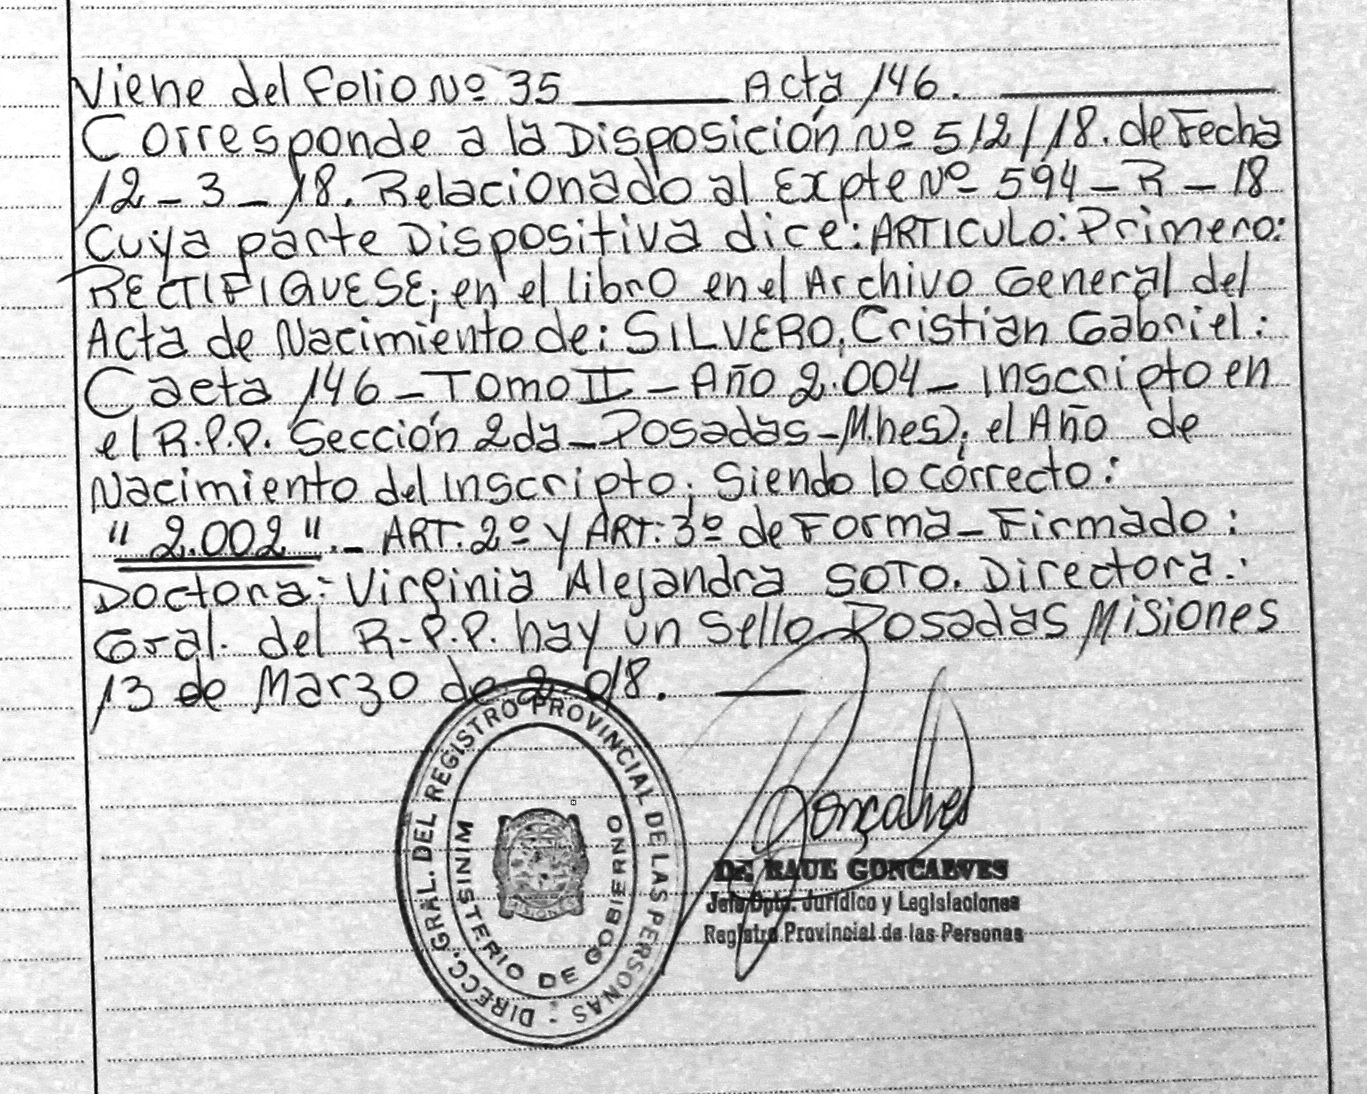 Viene del Folio Nº 35 ______ Acta 146. ______
Corresponde a la Disposición Nº 512/18. de Fecha
12-3-18. Relacionado al Expte Nº 594-R-18
Cuya parte Dispositiva dice: ARTICULO: Primero:
RECTIFIQUESE; en el libro en el Archivo General del
Acta de Nacimiento de: SILVERO, Cristian Gabriel:
Caeta 146 - Tomo II - Año 2.004 - Inscripto en
el R.P.P. Sección 2da - Posadas - Mnes); el Año de
Nacimiento del Inscripto; Siendo lo córrecto:
"2.002".- ART: 2º y ART: 3º de Forma - Firmado:
Doctora: Virginia Alejandra SOTO. Directora.
Gral. del R-P.P. hay un Sello Posadas Misiones
13 de Marzo de 2.018. ___
DIRECC. GRAL. DEL REGISTRO PROVINCIAL DE LAS PERSONAS
MINISTERIO DE GOBIERNO
MISIONES
Gonçalves
Dr. RAUL GONCALVES
Jefe Dpto. Jurídico y Legislaciones
Registro Provincial de las Personas